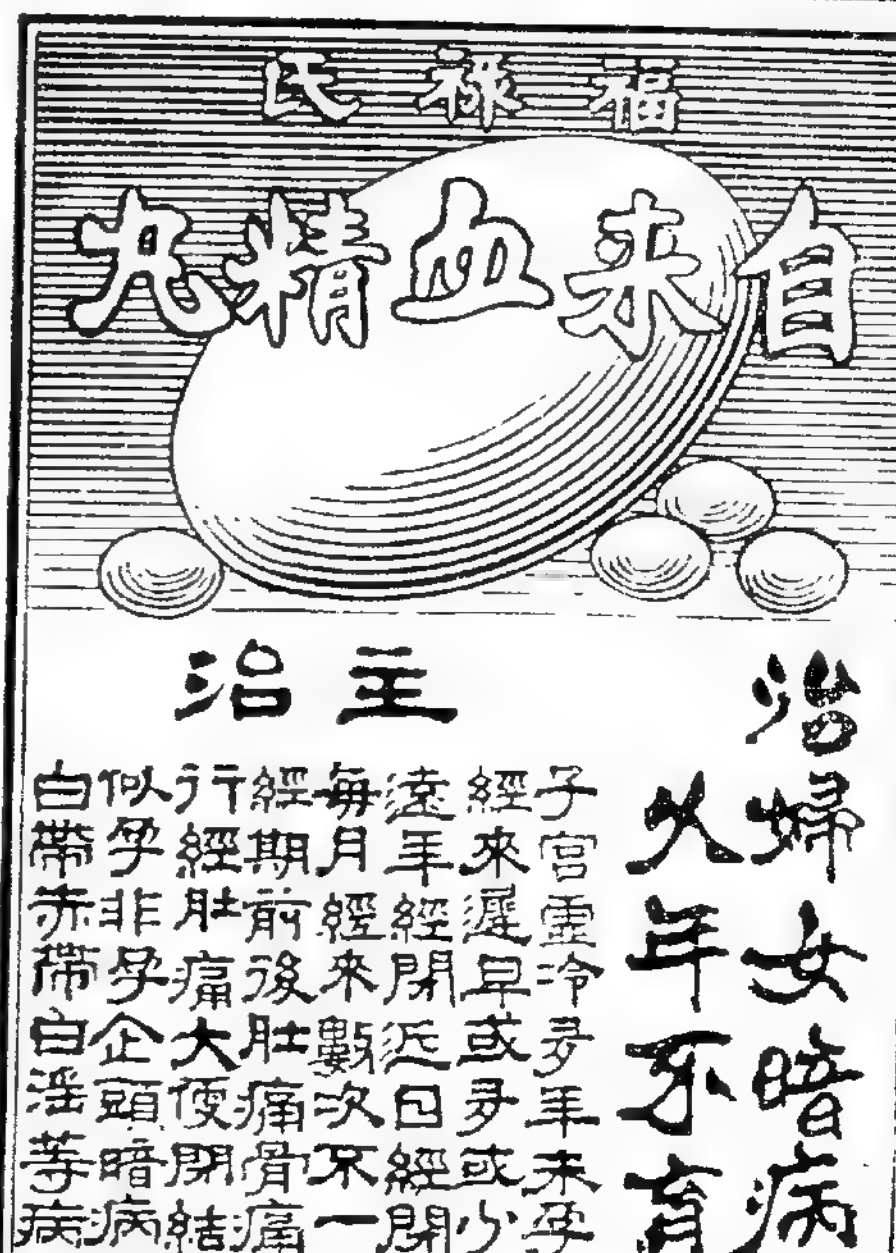 福祿氏
自来血精丸
治婦女暗病
久年不育
主治
子宮靈冷多年未孕
經來遲早或多或少
遠年經閉近日經閉
每月經來數次不一
經期前後肚痛骨痛
行經肚痛大便閉結
似孕非孕企頭暗病
白帶赤帶白淫等病